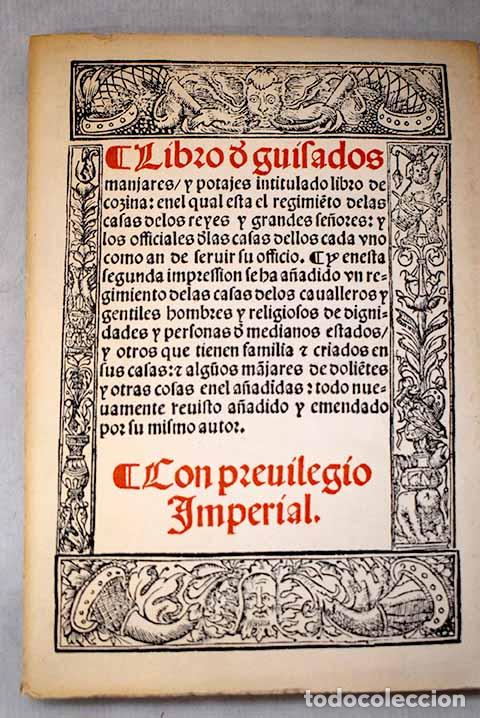 ¶Libro đ guisados
manjares/ y potajes intitulado libro de
cozina: enel qual esta el regimiẽto delas
casas delos reyes y grandes señores: y
los officiales đlas casas dellos cada vno
como an de seruir su officio. ¶Y enesta
segunda impression se ha añadido vn re-
gimiento delas casas delos caualleros y
gentiles hombres y religiosos de digni-
dades y personas đ medianos estados/
y otros que tienen familia ⁊ criados en
sus casas: ⁊ algũos mãjares de doliẽtes
y otras cosas enel añadidas: todo nue-
uamente reuisto añadido y emendado
por su mismo autor.
¶Con preuilegio
Imperial.
todocoleccion